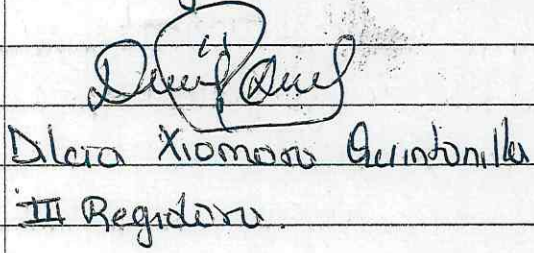 Dilcia Xiomara Quintanilla
III Regidora.